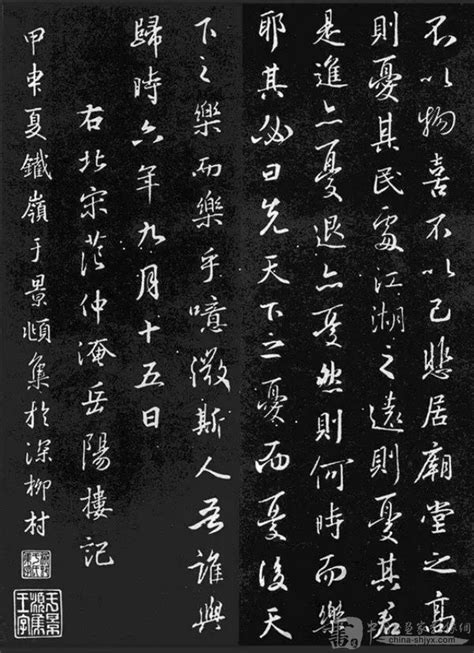 不以物喜不以己悲居廟堂之高
則憂其民處江湖之遠則憂其君
是進亦憂退亦憂然則何時而樂
耶其必曰先天下之憂而憂後天
下之樂而樂乎噫微斯人吾誰與
歸時六年九月十五日
右北宋范仲淹岳陽樓記
甲申夏鐵嶺于景頫集於深柳村
china-shjyx.com